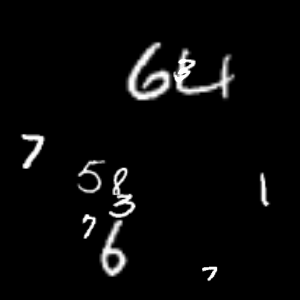 6 8 4
7
5 8
3
1
7 6
7